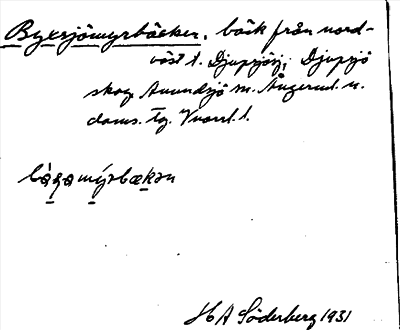 Byxsjömyrbäcken, bäck från nord-
väst t. Djupsjön; Djupsjö
skog Anundsjö sn. Ångerml. n.
doms. Tg.
bæ̀ksamýrbækən
H A Söderberg 1931